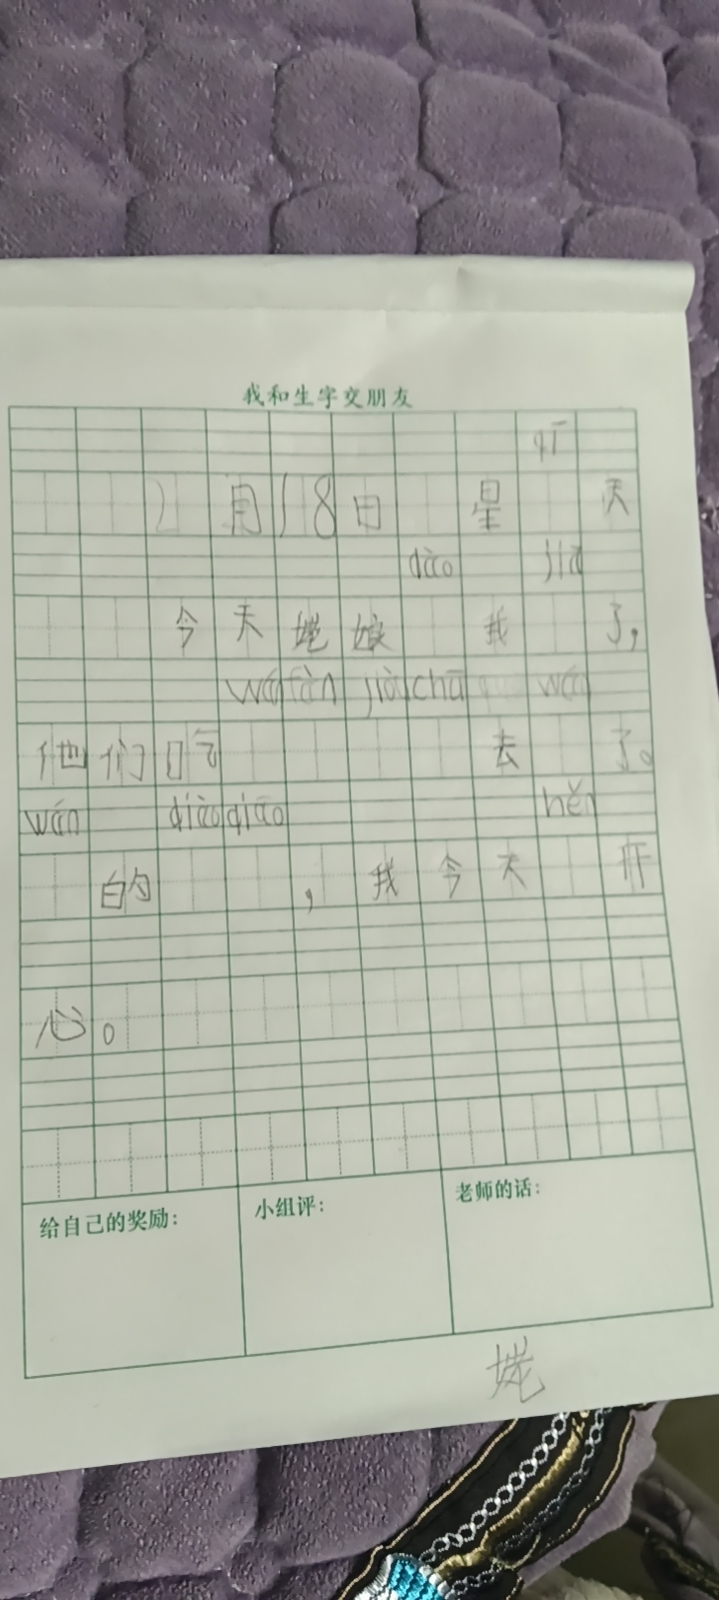 我和生字交朋友
qī
2月18日 星 天
dào jiā
今天姥娘 我 了，
wán fàn jiù chū wán
他们吃 去 了。
wán qiāo qiāo hěn
的 ，我今天 开
心。
给自己的奖励：
小组评：
老师的话：
姥